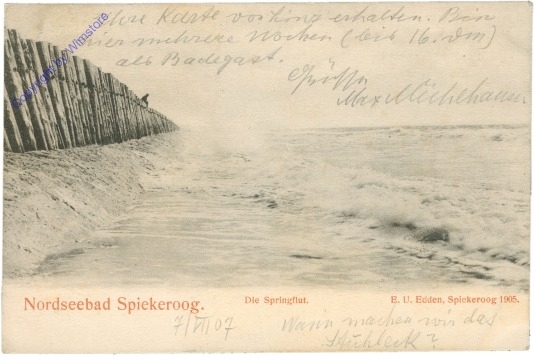 Ihre Karte vorhing erhalten. Bin
hier mehrere Wochen (bis 16. dm)
als Badegast.
Grüsse
Max
Copyright by Wimstore
Nordseebad Spiekeroog.
Die Springflut.
E. U. Edden, Spiekeroog 1905.
7/VII 07
Wann machen wir das
Stuhleck?